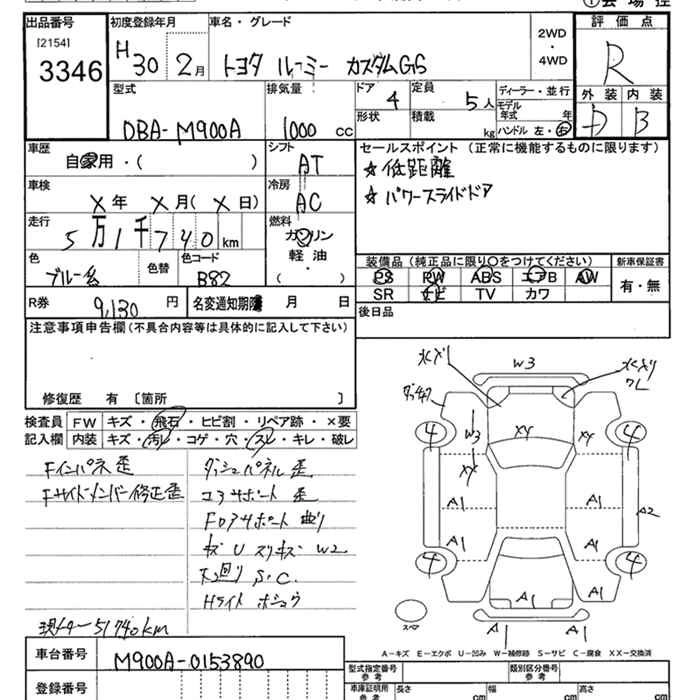 ①会場控
出品番号
[2154]
3346
初度登録年月
H30 2月
車名・グレード
トヨタ ルーミー カスタムGS
2WD
・
4WD
評価点
R
外装 内装
D B
型式
DBA-M900A
排気量
1000 cc
ドア
4
定員
5人
形状
積載
kg
ディーラー・並行
モデル
年式 年
ハンドル 左・右
車歴
自家用・( )
シフト
AT
セールスポイント (正常に機能するものに限ります)
☆低距離
☆パワースライドドア
車検
X年 X月(X日)
冷房
AC
走行
5万1千740km
燃料
ガソリン
軽・油
・
( )
色
ブルー名
色替
色コード
B82
装備品(純正品に限り○をつけてください)
PS PW ABS エアB AW
SR ナビ TV カワ
新車保証書
有・無
R券 9,130円
名変通知期限 月 日
後日品
注意事項申告欄(不具合内容等は具体的に記入して下さい)
修復歴 有〔箇所 〕
検査員
記入欄
FW キズ・飛石・ヒビ割・リペア跡・×要
内装 キズ・汚レ・コゲ・穴・スレ・キレ・破レ
Fインパネ歪
Fサイドメンバー修正歪
ダッシュパネル歪
コアサポート歪
Fロアサポート曲り
キズ U スリキズ W2
下回りS.C.
Hライト ホシュウ
現メター51740km
水メリ
W3
水メリ
ワレ
4
W3
XY
XY
XY
4
A1
A1
A2
A1
A1
4
4
A1
A1
A1
スペア
A-キズ E-エクボ U-凹み W-補修跡 S-サビ C-腐食 XX-交換済
車台番号
M900A-0153890
登録番号
型式指定番号
参考
類別区分番号
参考
車庫証明用
参考
長さ
cm
幅
cm
高さ
cm